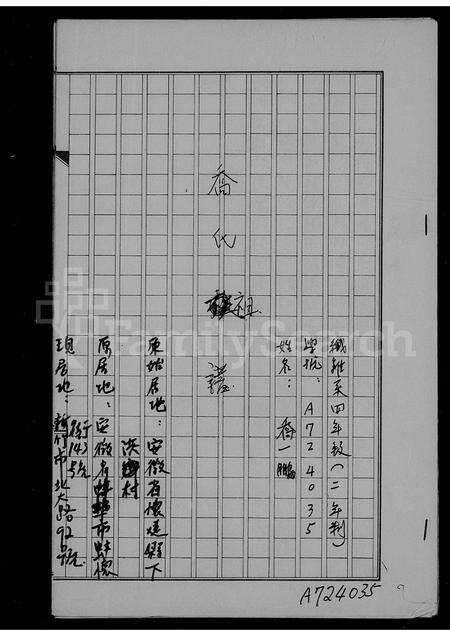 纖維系四年級(二年制)
學號:A724035
姓名:喬一鵬
喬氏祖譜
原始居地:安徽省懷遠縣下
洪村
原居地:安徽省蚌埠市蚌懷
街143號
現居地:新竹市北大路92號
A724035
FamilySearch